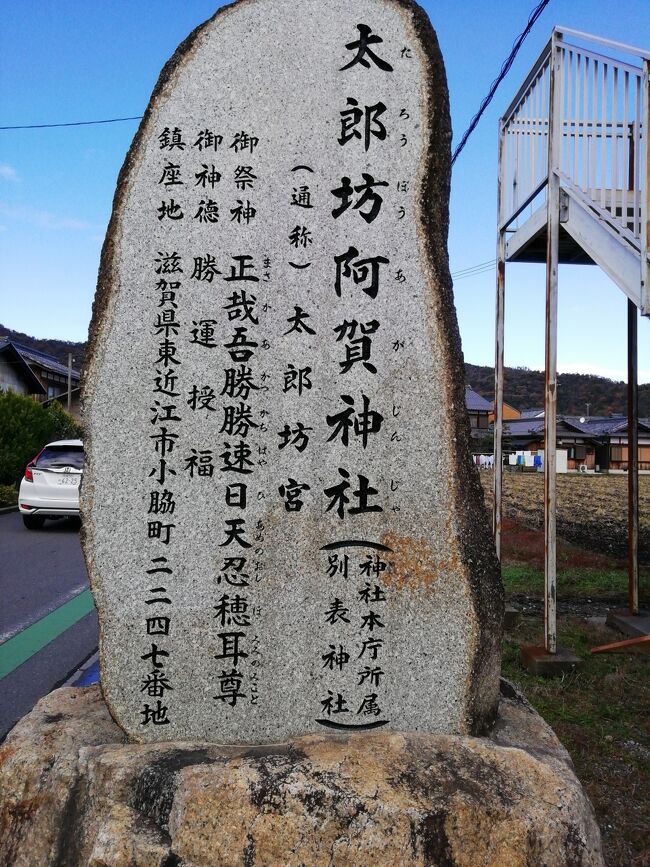 太郎坊阿賀神社
たろうぼうあがじんじゃ
(神社本庁所属
別表神社)
(通称) 太郎坊宮
御祭神 正哉吾勝勝速日天忍穂耳尊
まさかあかつかちはやひあめのおしほみみのみこと
御神徳 勝運授福
鎮座地 滋賀県東近江市小脇町二二四七番地